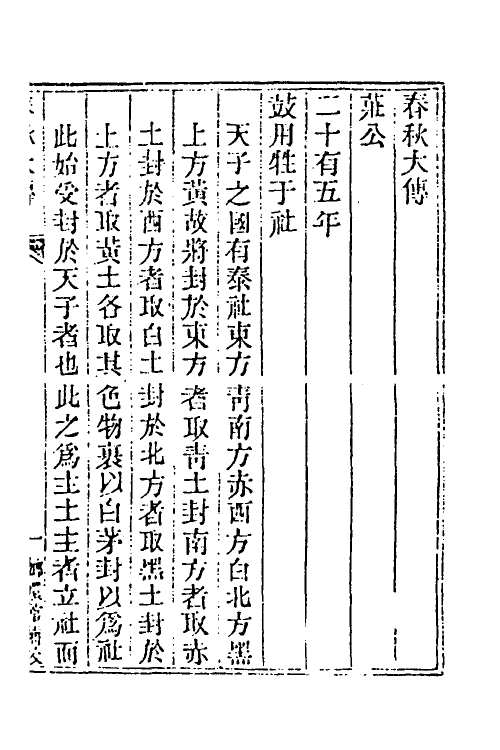 春秋大傳
莊公
二十有五年
鼓用牲于社
天子之國有泰社東方靑南方赤西方白北方黑
上方黃故將封於東方者取靑土封南方者取赤
土封於西方者取白土封於北方者取黑土封於
上方者取黃土各取其色物裹以白茅封以爲社
此始受封於天子者也此之爲主土主土者立社而